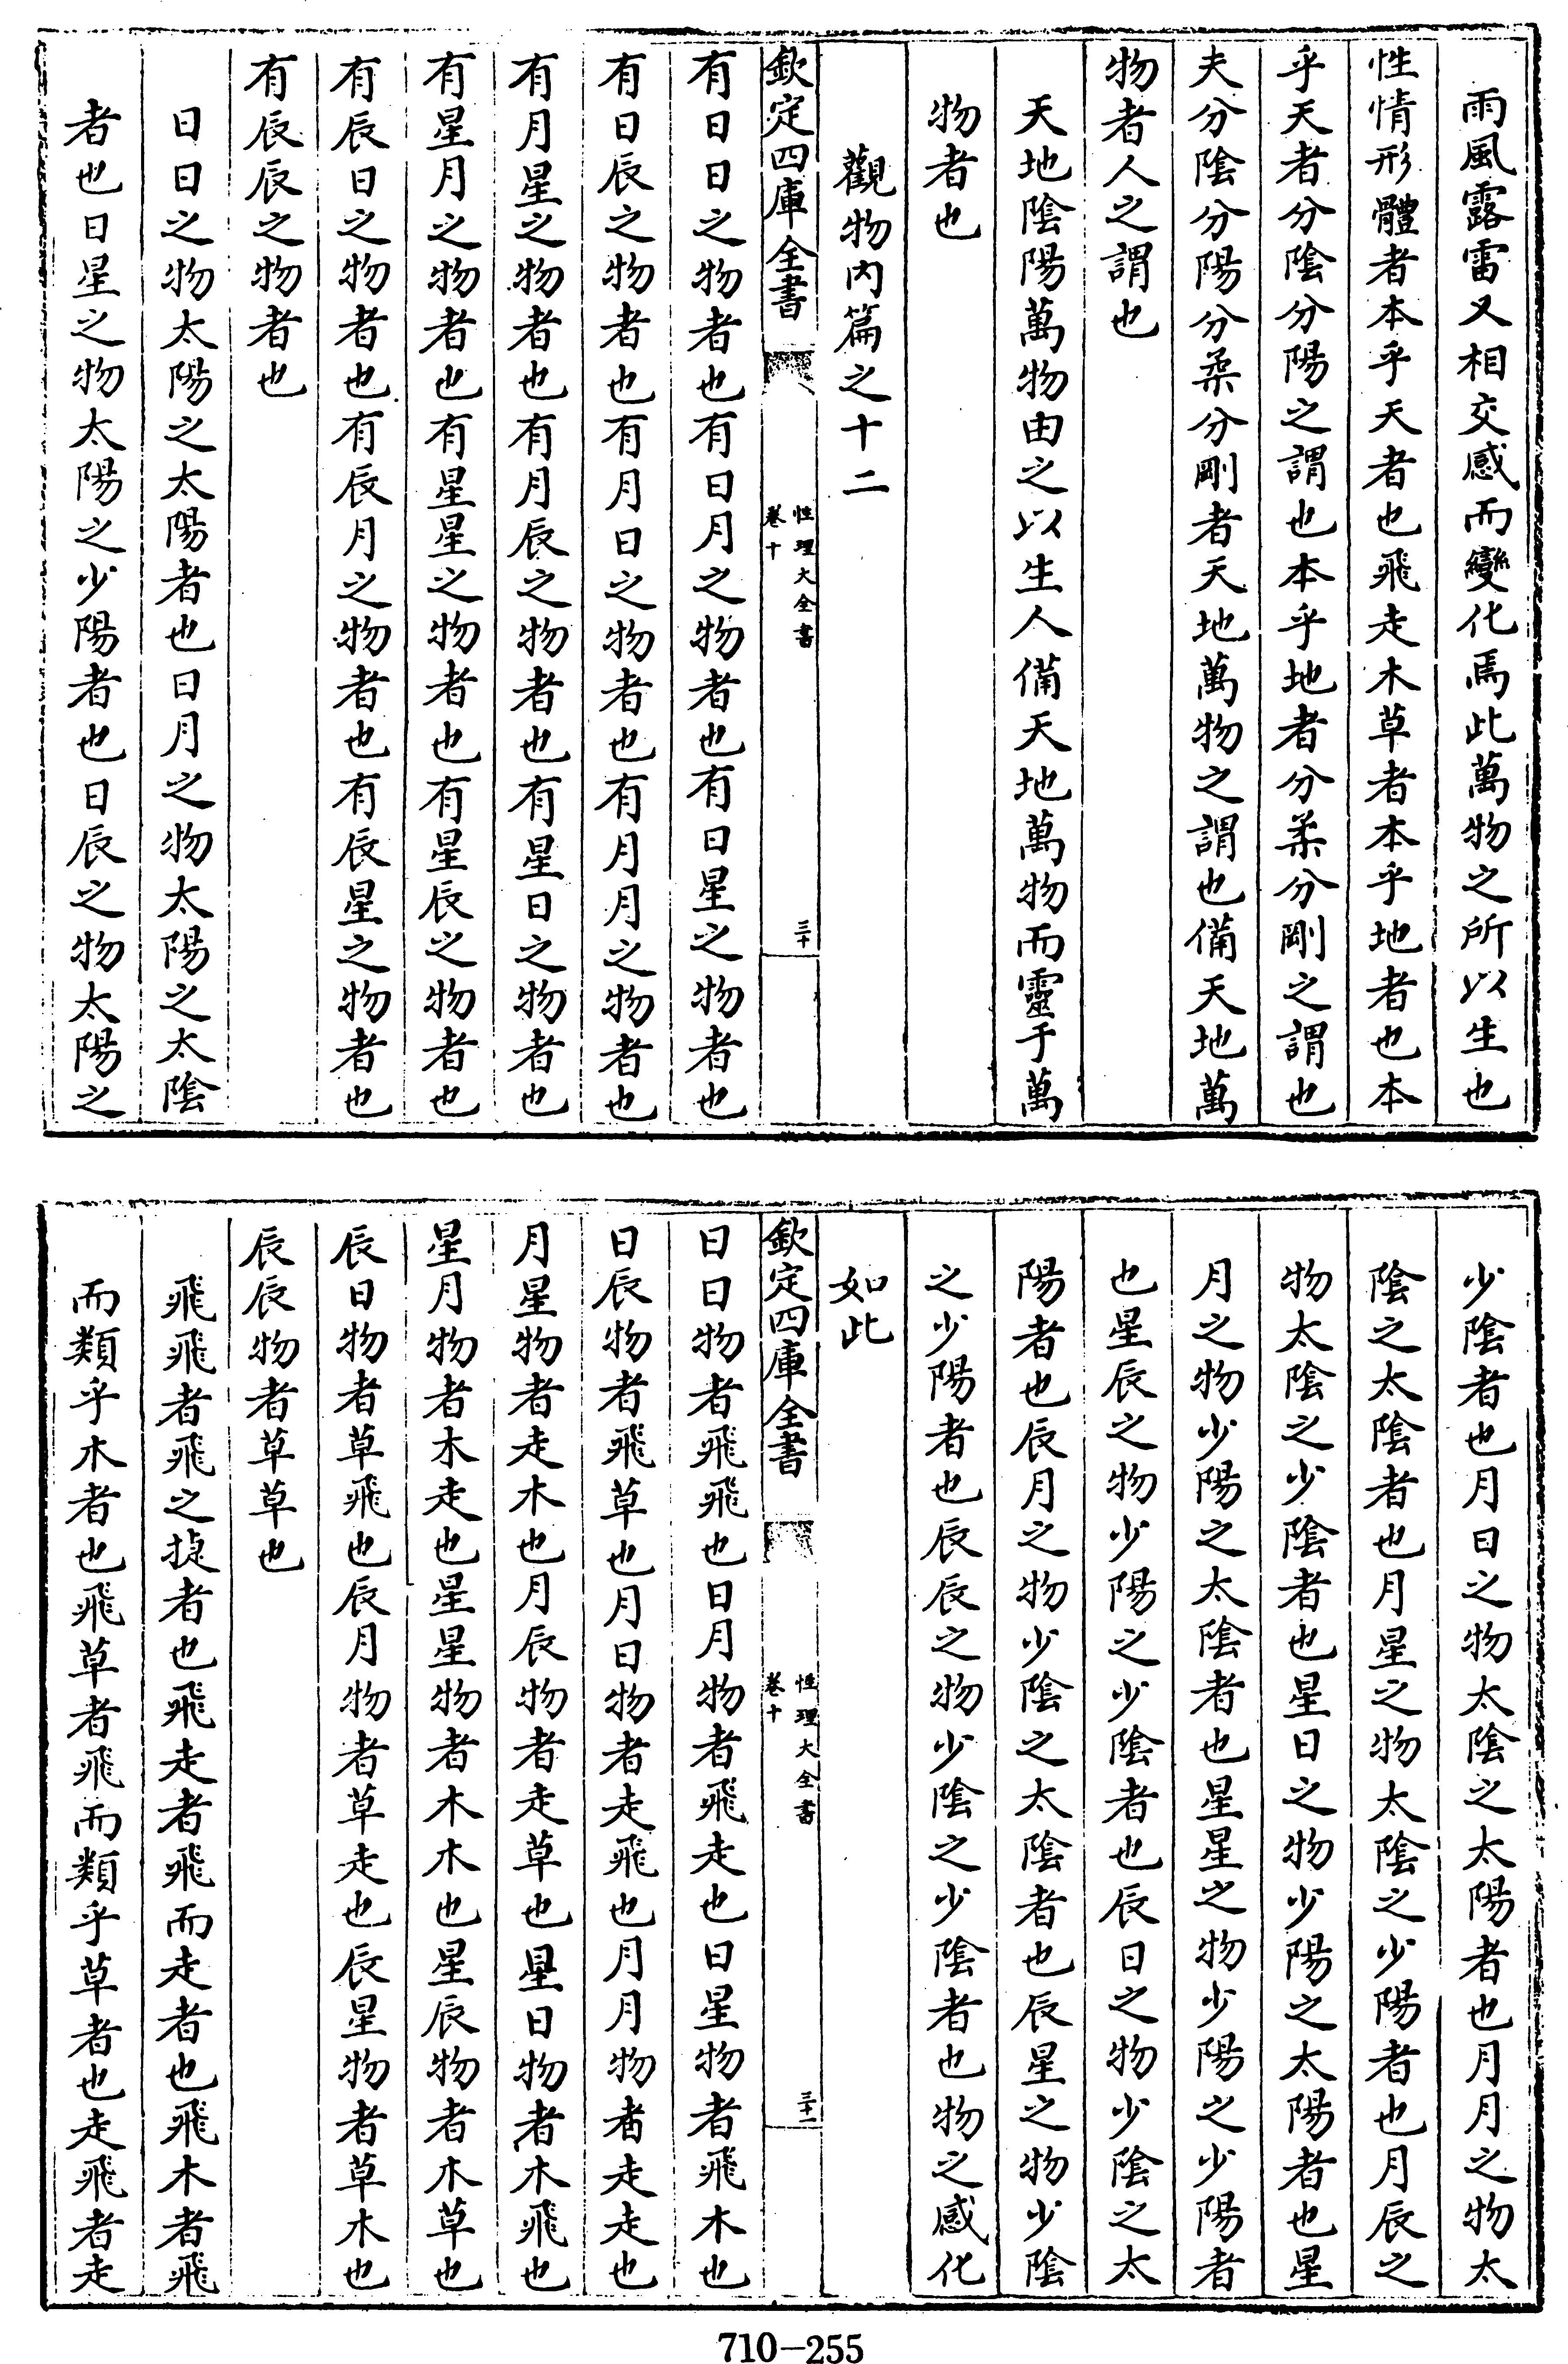 雨風露雷又相交感而變化焉此萬物之所以生也
性情形體者本乎天者也飛走木草者本乎地者也本
乎天者分陰分陽之謂也本乎地者分柔分剛之謂也
夫分陰分陽分柔分剛者天地萬物之謂也備天地萬
物者人之謂也
天地陰陽萬物由之以生人備天地萬物而靈于萬
物者也
觀物內篇之十二
欽定四庫全書
性理大全書
卷十
三十
有日日之物者也有日月之物者也有日星之物者也
有日辰之物者也有月日之物者也有月月之物者也
有月星之物者也有月辰之物者也有星日之物者也
有星月之物者也有星星之物者也有星辰之物者也
有辰日之物者也有辰月之物者也有辰星之物者也
有辰辰之物者也
日日之物太陽之太陽者也日月之物太陽之太陰
者也日星之物太陽之少陽者也日辰之物太陽之
少陰者也月日之物太陰之太陽者也月月之物太
陰之太陰者也月星之物太陰之少陽者也月辰之
物太陰之少陰者也星日之物少陽之太陽者也星
月之物少陽之太陰者也星星之物少陽之少陽者
也星辰之物少陽之少陰者也辰日之物少陰之太
陽者也辰月之物少陰之太陰者也辰星之物少陰
之少陽者也辰辰之物少陰之少陰者也物之感化
如此
欽定四庫全書
性理大全書
卷十
三十一
日日物者飛飛也日月物者飛走也日星物者飛木也
日辰物者飛草也月日物者走飛也月月物者走走也
月星物者走木也月辰物者走草也星日物者木飛也
星月物者木走也星星物者木木也星辰物者木草也
辰日物者草飛也辰月物者草走也辰星物者草木也
辰辰物者草草也
飛飛者飛之捷者也飛走者飛而走者也飛木者飛
而類乎木者也飛草者飛而類乎草者也走飛者走
710-255